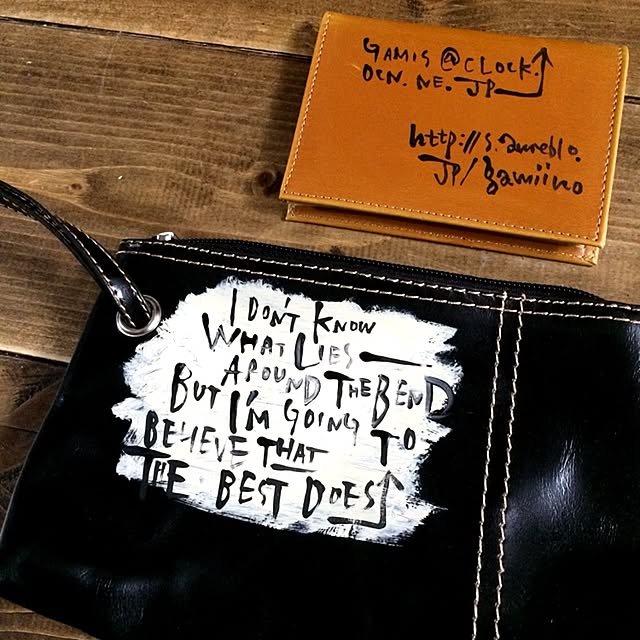 GAMIS @CLOCK.
OCN. NE. JP
http://s.ameblo.
JP/gamiino
I DON'T KNOW
WHAT LIES
AROUND THE BEND
BUT I'M GOING TO
BELIEVE THAT
THE BEST DOES